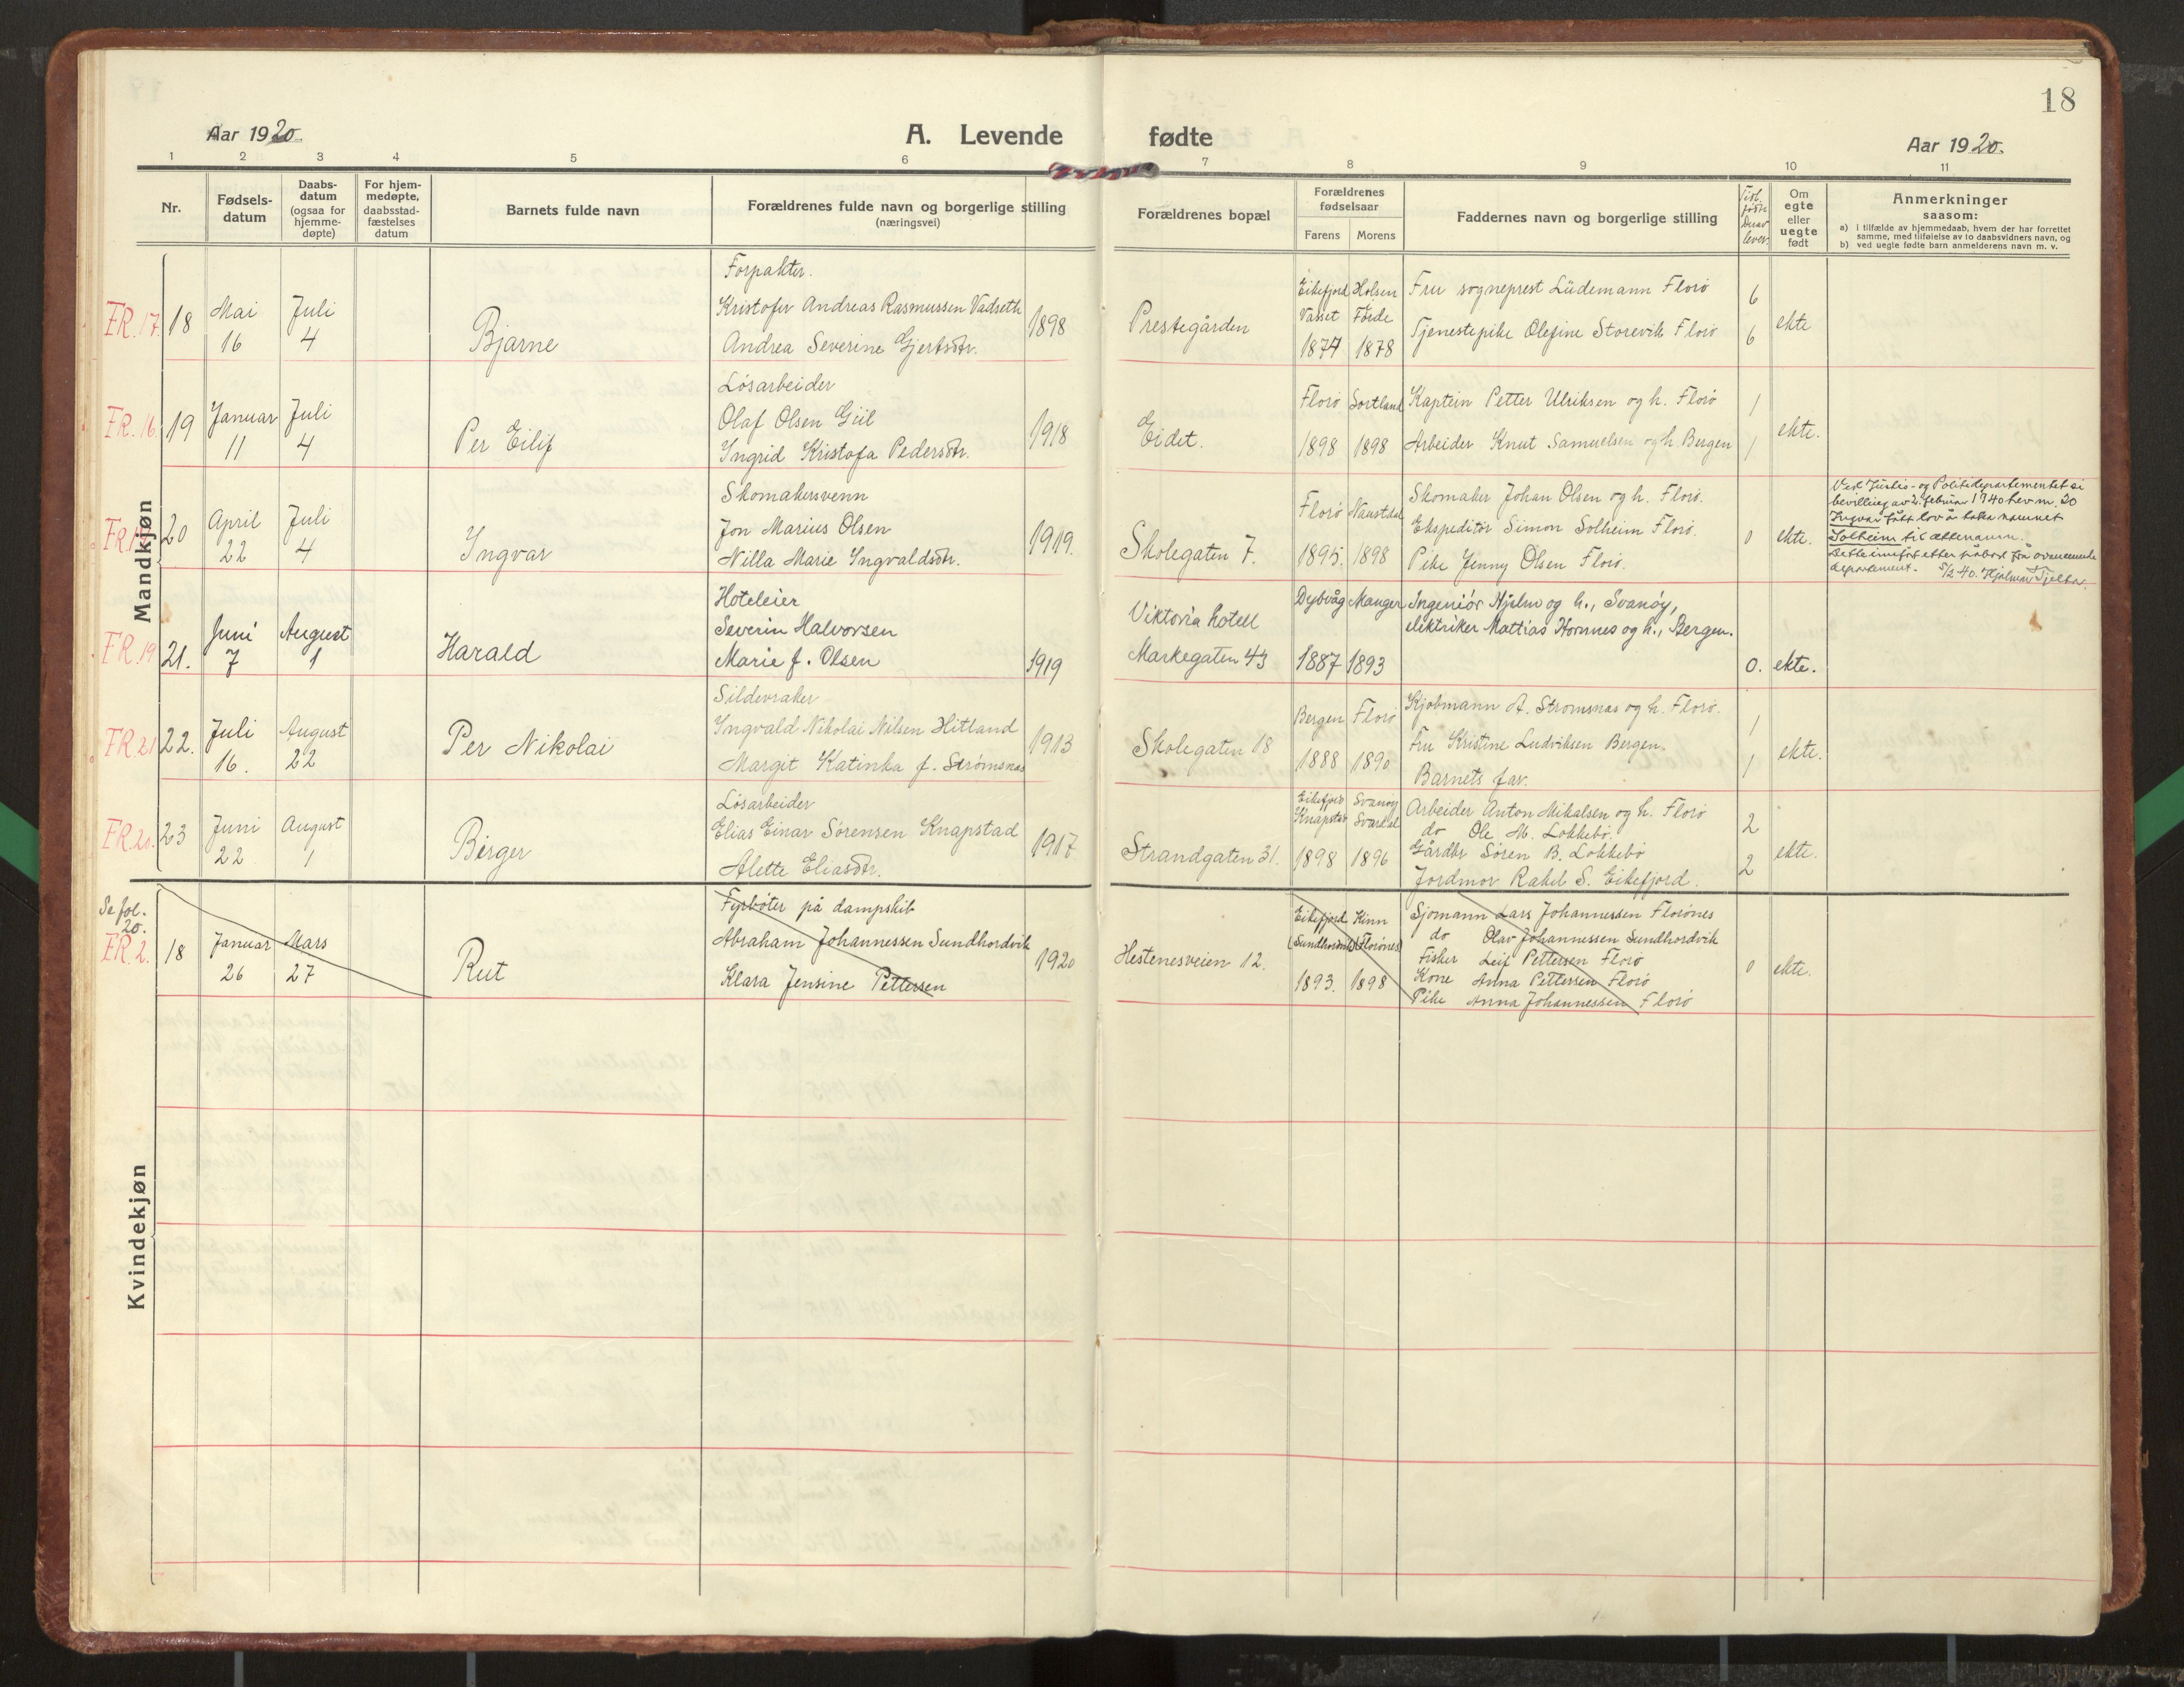 18
Aar 1920.
A. Levende fødte
Aar 1920.
1 2 3 4 5 6 7 8 9 10 11
Nr.
Fødsels-
datum
Daabs-
datum
(ogsaa for
hjemme-
døpte)
For hjem-
medøpte,
daabsstad-
fæstelses
datum
Barnets fulde navn
Forældrenes fulde navn og borgerlige stilling
(næringsvei)
Forældrenes bopæl
Forældrenes
fødselsaar
Farens Morens
Faddernes navn og borgerlige stilling
Tidl.
fødte
Derav
lever
Om
egte
eller
uegte
født
Anmerkninger
saasom:
a) i tilfælde av hjemmedaab, hvem der har forrettet
samme, med tilføielse av to daabsvidners navn, og
b) ved uegte fødte barn anmelderens navn m. v.
Mandkjøn
FR. 17. 18
Mai
16
Juli
4
Bjarne
Forpakter.
Kristofer Andreas Rasmussen Vadseth
Andrea Severine Gjertsdtr.
1898
Prestegården
Eikefjord
Vasset
1874
Holsen
Førde
1878
Fru sogneprest Lüdemann Florø
Tjenestepike Olefine Storevik Florø
6
6
ekte
FR. 16. 19
Januar
11
Juli
4
Per Eilif
Løsarbeider
Olaf Olsen Giil
Ingrid Kristofa Pedersdtr.
1918
Eidet.
Florø
1898
Sortland
1898
Kaptein Petter Ulriksen og h. Florø
Arbeider Knut Samuelsen og h. Bergen
1
1
ekte.
20
April
22
Juli
4
Ingvar
Skomakersvenn
Jon Marius Olsen
Nilla Marie Ingvaldsdtr.
1919.
Skolegaten 7.
Florø
1895.
Naustdal
1898
Skomaker Johan Olsen og h. Florø.
Ekspeditør Simon Solheim Florø.
Pike Jenny Olsen Florø.
0
ekte.
Ved Justis- og Politidepartementet si
bevilling av 2. februar 1940 hev nr. 20
Ingvar fått lov å taka namnet
Solheim til ættenamn.
Dette innført etter påbod frå ovannemnde
departement. 5/2 40. Hjalmar Tjelta.
FR. 19 21.
Juni
7
August
1
Harald
Hoteleier
Severin Halvorsen
Marie f. Olsen
1919
Viktoria hotell
Markegaten 43
Dybvåg
1887
Manger
1893
Ingeniør Hjelm og h., Svanøy,
elektriker Mattias Hornnes og h., Bergen.
0.
ekte.
FR 21 22.
Juli
16.
August
22
Per Nikolai
Sildevraker
Yngvald Nikolai Nilsen Hitland
Margit Katinka f. Strømsnas
1913
Skolegaten 18
Bergen
1888
Florø
1890
Kjøbmann A. Strømsnas og h. Florø.
Fru Kristine Ludviksen Bergen.
Barnets far.
1
1
ekte.
FR. 20. 23
Juni
22
August
1
Birger
Løsarbeider
Elias Einar Sørensen Knapstad
Alette Eliasdtr.
1917
Strandgaten 31.
Eikefjord
Knapstad
1898
Svanøy
1896
Arbeider Anton Mikalsen og h. Florø
do Ole M. Løkkebø.
Gårdbr Søren B. Løkkebø
Jordmor Rakel S. Eikefjord.
2
2
ekte.
Kvindekjøn
Se fol.
20.
FR. 2. 18
Januar
26
Mars
27
Rut
Fyrbøter på dampskib
Abraham Johannessen Sundhordvik
Klara Jensine Pettersen
1920
Hestenesveien 12.
Eikefjord
(Sundhordvik)
1893.
Kinn
(Florønes)
1898
Sjømann Lars Johannessen Florønes
do Olav Johannessen Sundhordvik
Fisker Leif Pettersen Florø
Kone Anna Pettersen Florø
Pike Anna Johannessen Florø
0
ekte.